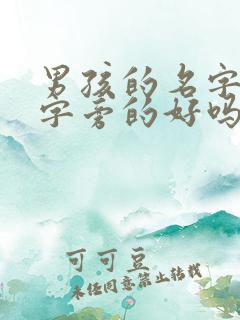 男孩的名字
字旁的好吗
可可豆
未经同意禁止转载